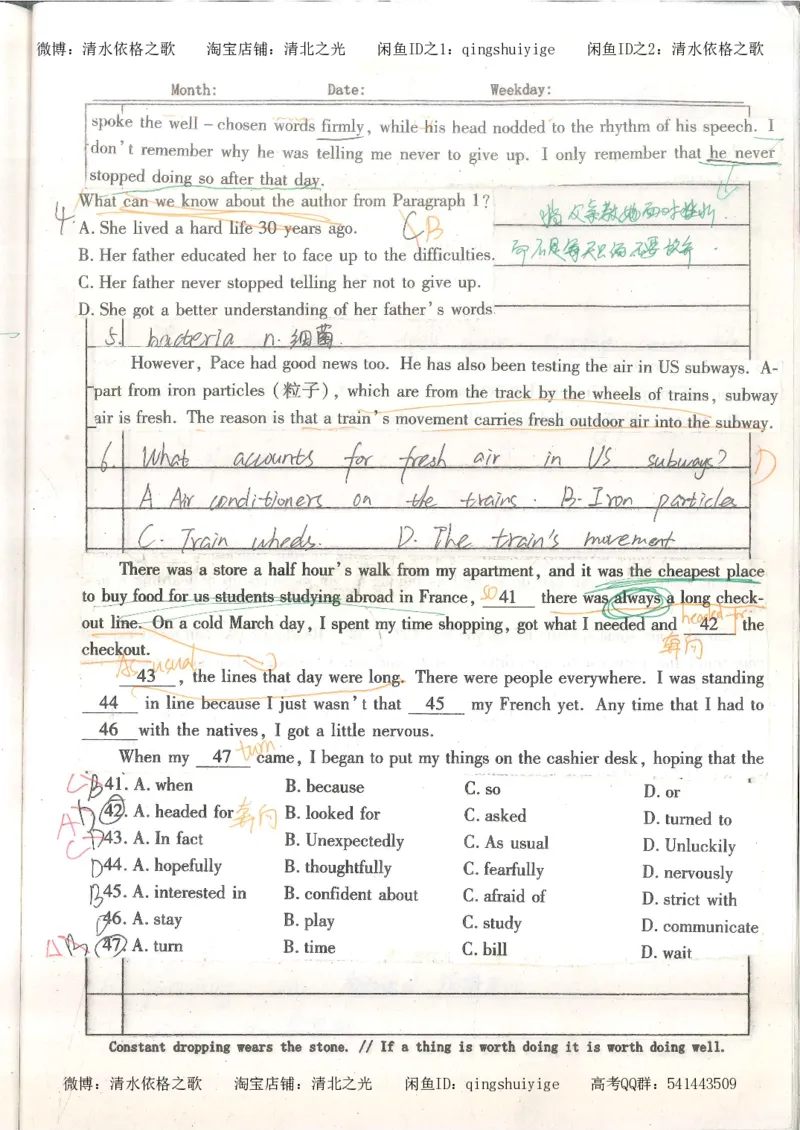 微博：清水依格之歌 淘宝店铺：清北之光 闲鱼ID之1：qingshuiyige 闲鱼ID之2：清水依格之歌
Month: Date: Weekday:
spoke the well－chosen words firmly, while his head nodded to the rhythm of his speech. I
don't remember why he was telling me never to give up. I only remember that he never
stopped doing so after that day.
What can we know about the author from Paragraph 1?
4. A. She lived a hard life 30 years ago. C B
B. Her father educated her to face up to the difficulties.
C. Her father never stopped telling her not to give up.
D. She got a better understanding of her father's words
父亲教她面对挫折.
而不是每天
5. bacteria n. 细菌.
However, Pace had good news too. He has also been testing the air in US subways. A-
part from iron particles (粒子), which are from the track by the wheels of trains, subway
air is fresh. The reason is that a train's movement carries fresh outdoor air into the subway.
6. What accounts for fresh air in US subways? D
A Air conditioners on the trains. B. Iron particles
C. Train wheels. D. The train's movement
There was a store a half hour's walk from my apartment, and it was the cheapest place
to buy food for us students studying abroad in France, so 41 there was always a long check-
out line. On a cold March day, I spent my time shopping, got what I needed and headed for 42 the
奔向
checkout.
As usual
43 , the lines that day were long. There were people everywhere. I was standing
44 in line because I just wasn't that 45 my French yet. Any time that I had to
46 with the natives, I got a little nervous.
When my 47 turn came, I began to put my things on the cashier desk, hoping that the
C B 41. A. when B. because C. so D. or
A D 42. A. headed for 奔向 B. looked for C. asked D. turned to
C D 43. A. In fact B. Unexpectedly C. As usual D. Unluckily
D 44. A. hopefully B. thoughtfully C. fearfully D. nervously
B 45. A. interested in B. confident about C. afraid of D. strict with
D 46. A. stay B. play C. study D. communicate
A B 47. A. turn B. time C. bill D. wait
Constant dropping wears the stone. // If a thing is worth doing it is worth doing well.
微博：清水依格之歌 淘宝店铺：清北之光 闲鱼ID：qingshuiyige 高考QQ群：541443509